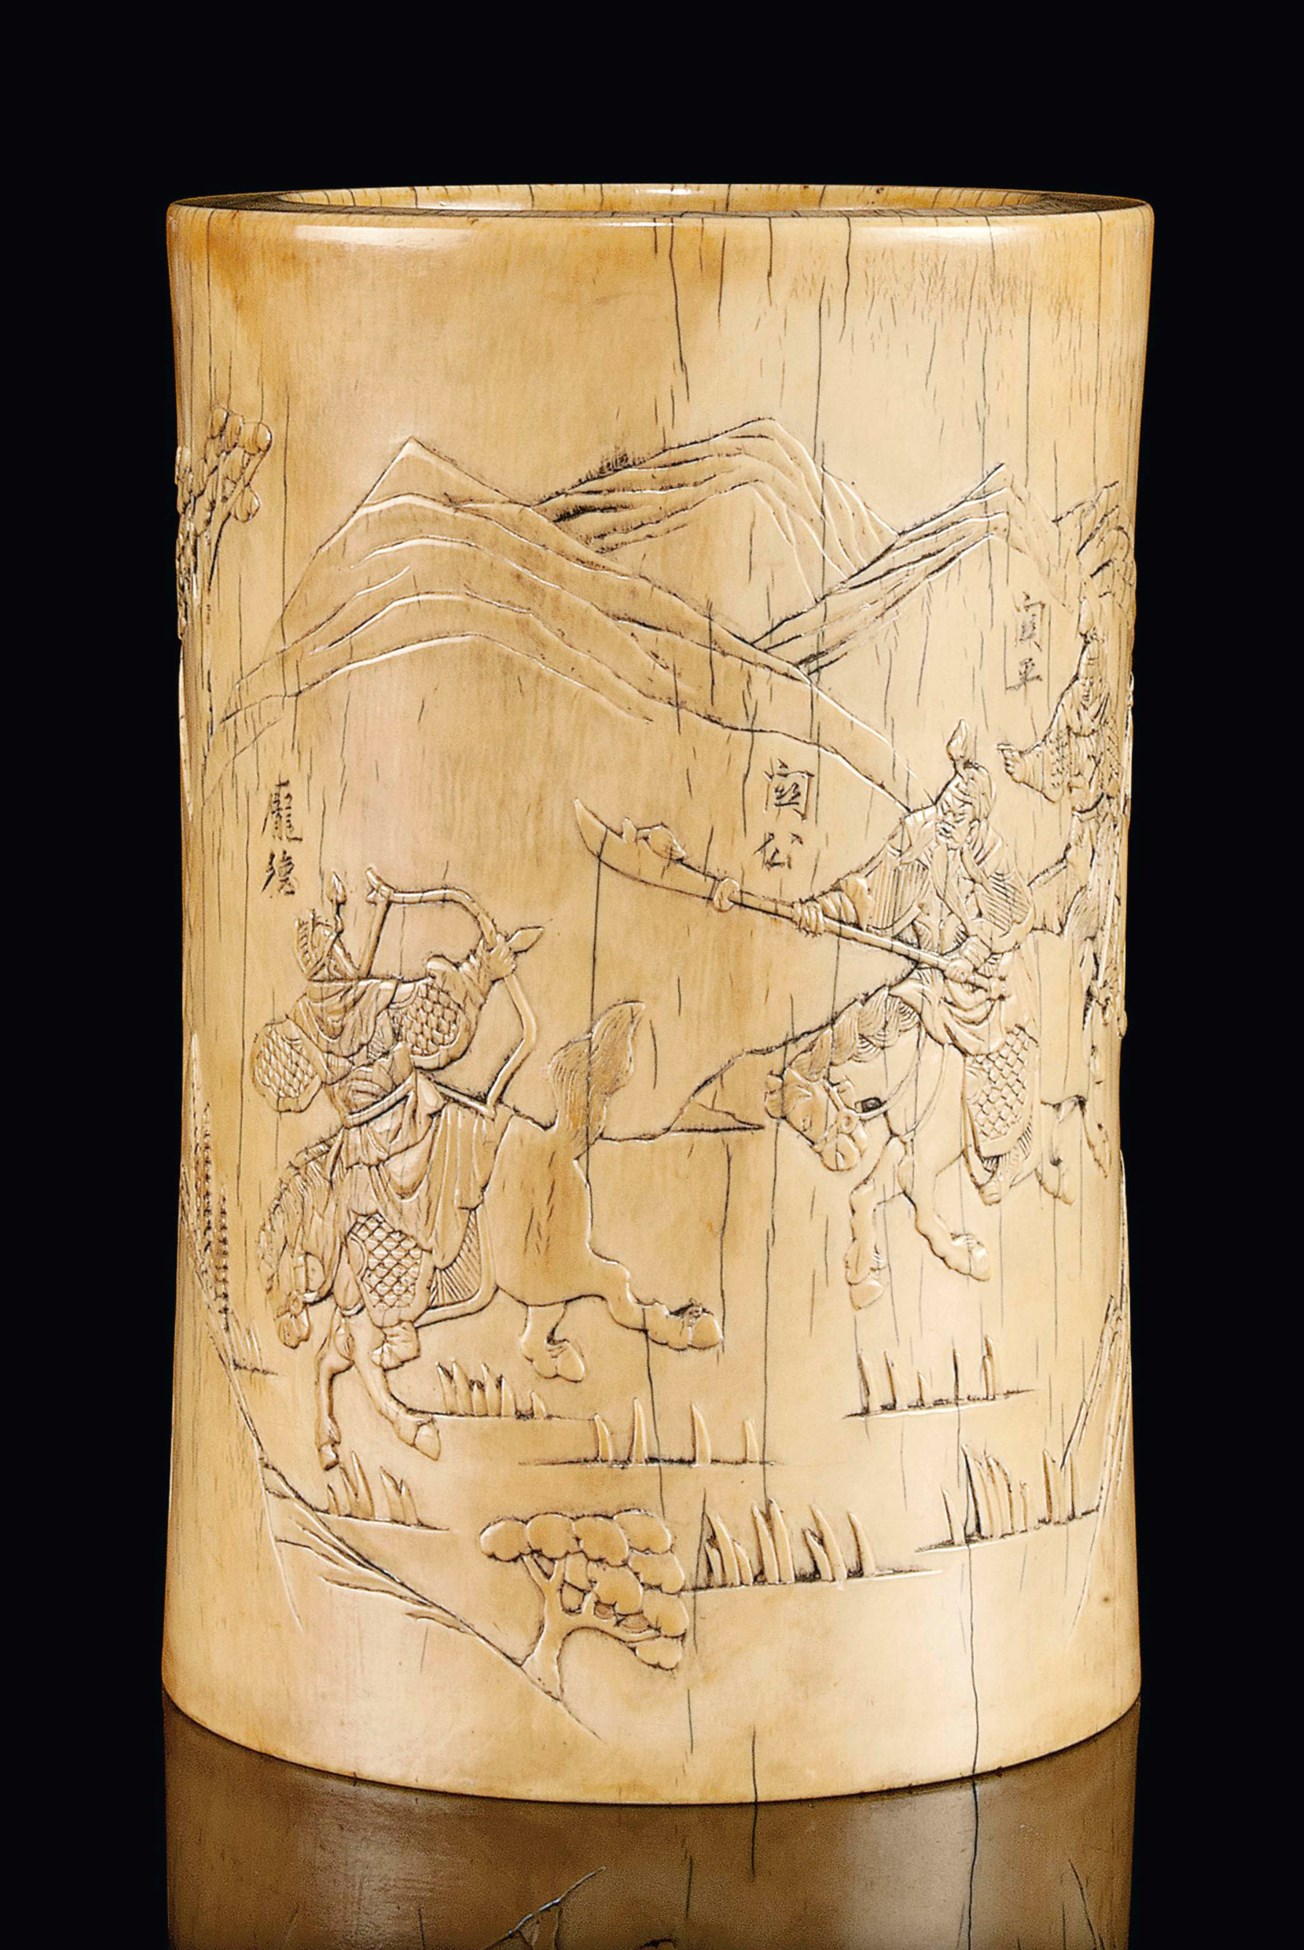 關平
關公
龐德